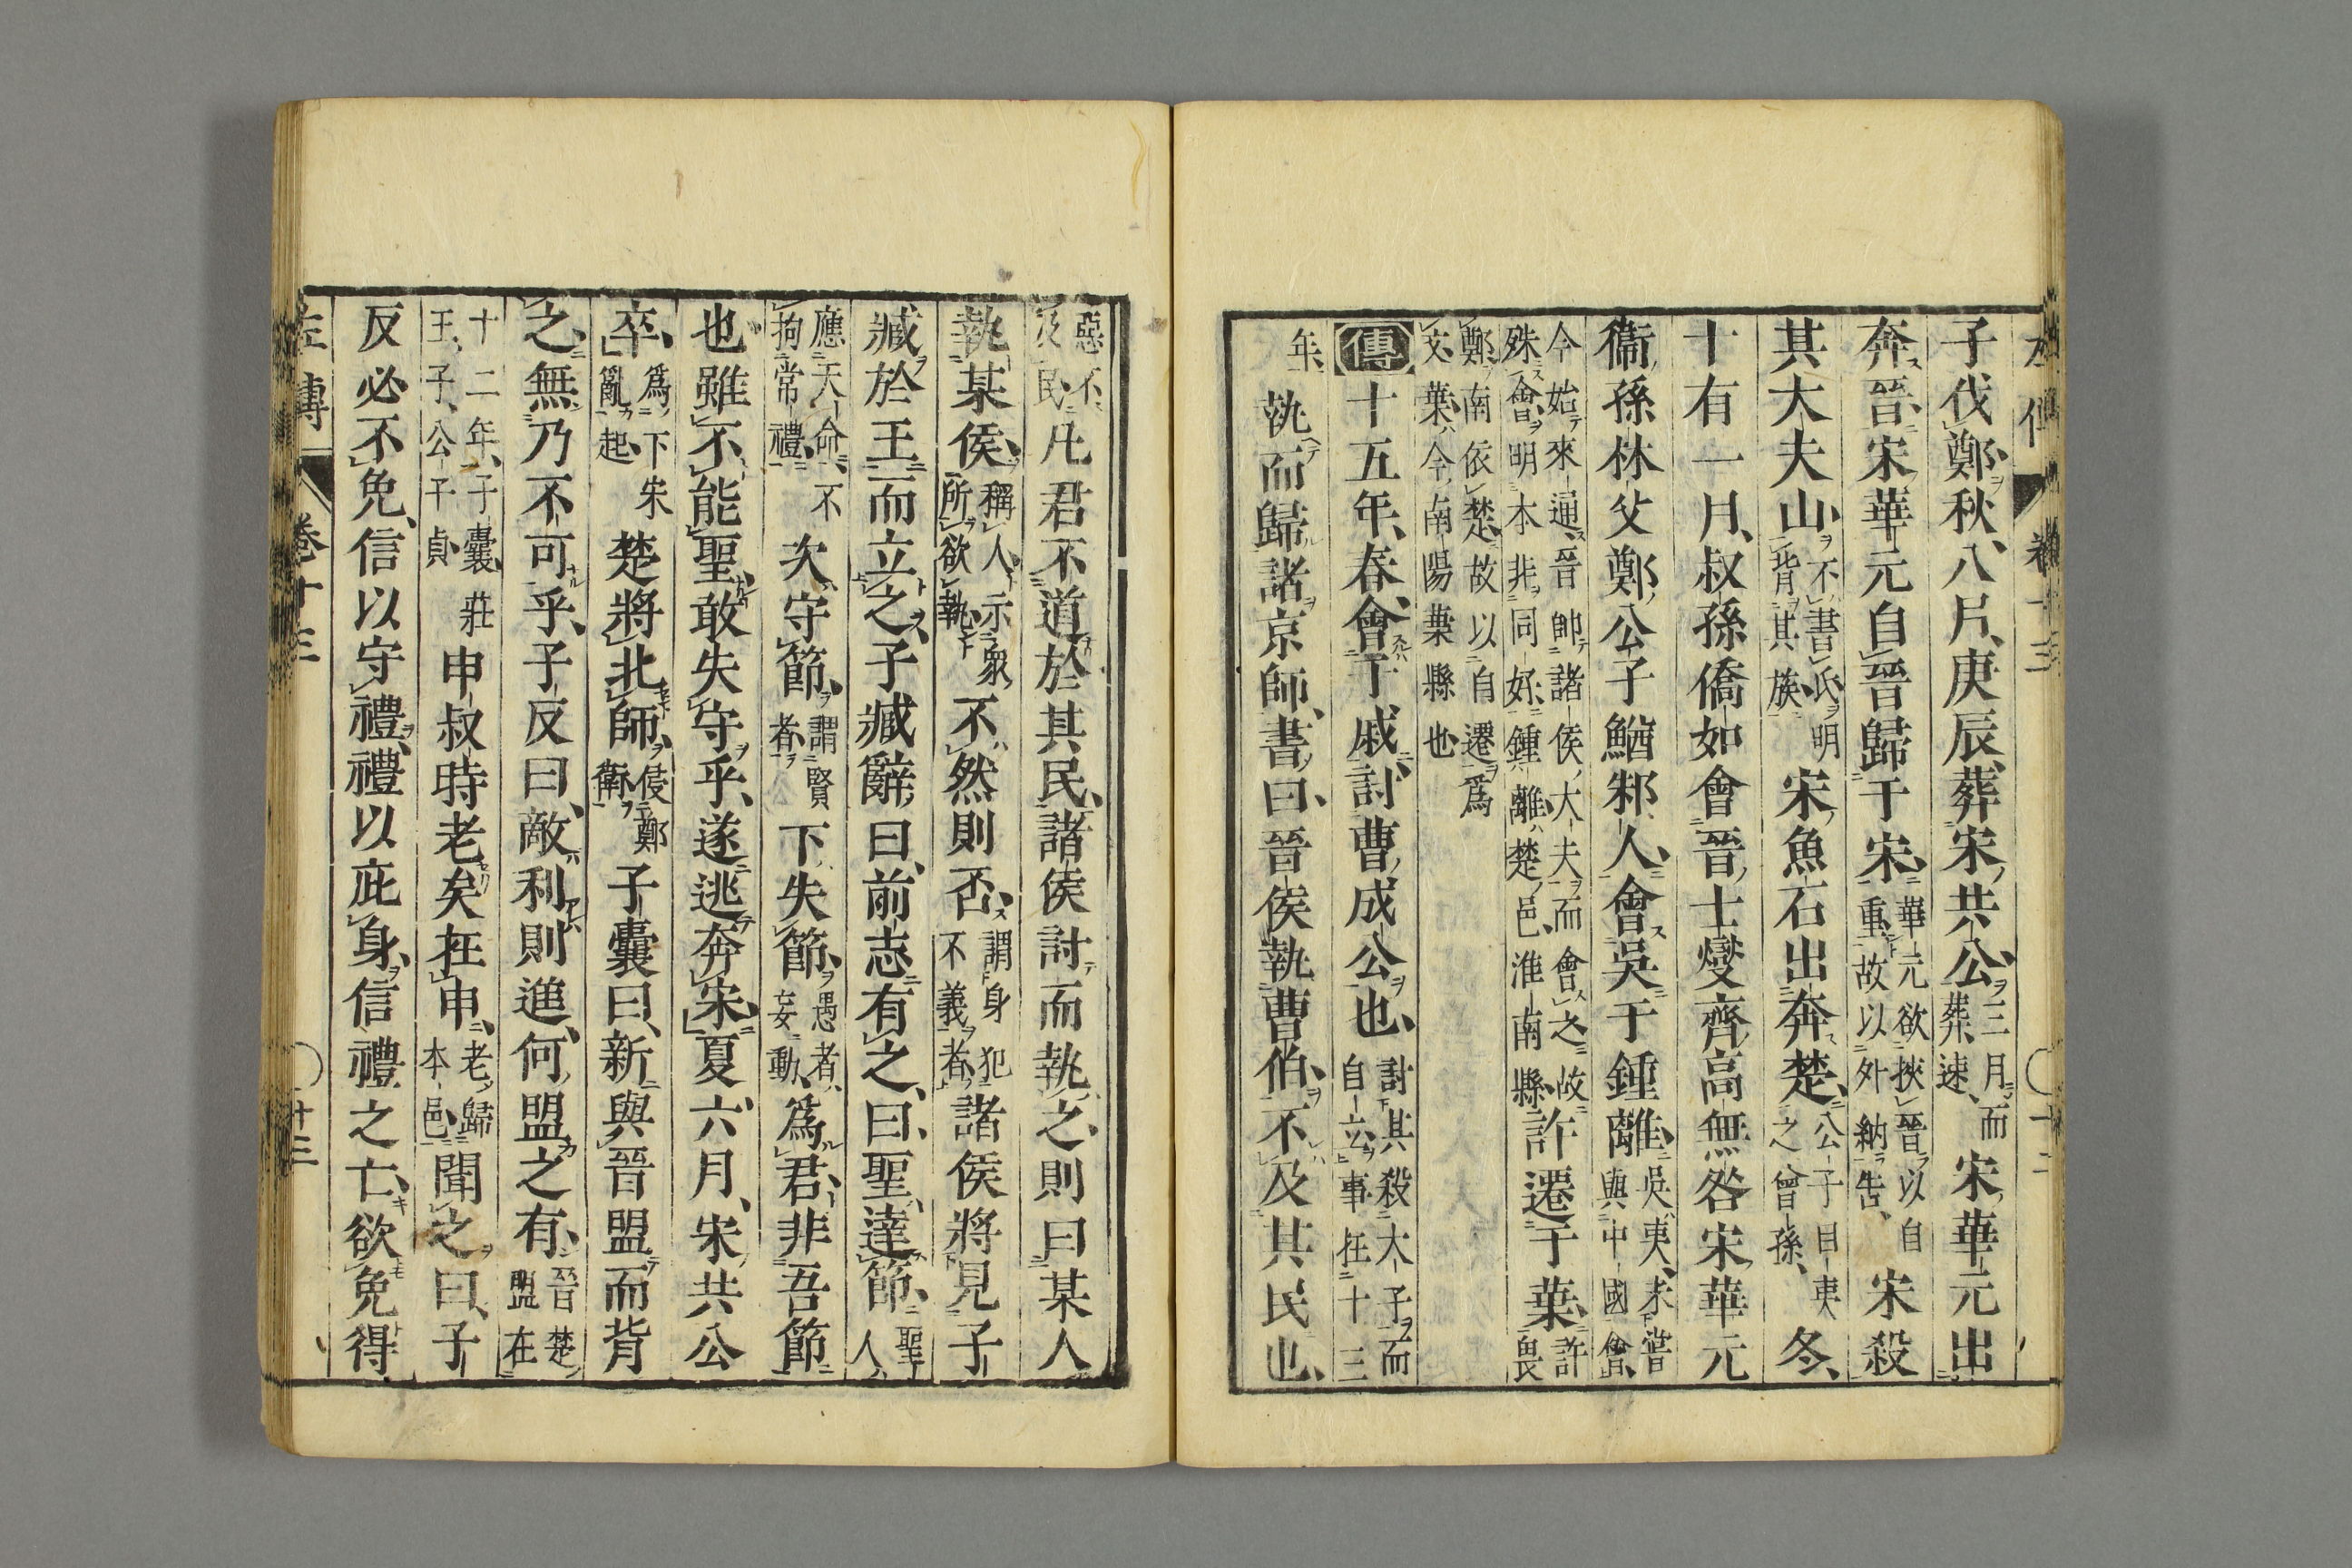 子伐鄭、秋、八月、庚辰、葬宋共公、三月而葬、速、宋華元出
奔晉、宋華元自晉歸于宋、華元欲挾晉以自重、故以外納告、宋殺
其大夫山、不書氏、明背其族、宋魚石出奔楚、公子目夷之曾孫、冬、
十有一月、叔孫僑如會晉士燮齊高無咎宋華元
衞孫林父鄭公子鰌邾人、會吳于鍾離、吳夷、未嘗與中國會、
今始來通、晉帥諸侯大夫而會之、故殊會、明本非同好、鍾離、楚邑、淮南縣、許遷于葉、許畏
鄭、南依楚、故以自遷爲文、葉、今南陽葉縣也
傳十五年、春、會于戚、討曹成公也、討其殺大子而自立、事在十三
年、執而歸諸京師、書曰、晉侯執曹伯、不及其民也、
惡不及民、凡君不道於其民、諸侯討而執之、則曰某人
執某侯、稱人、示衆所欲執、不然則否、謂身犯不義者、諸侯將見子
臧於王而立之、子臧辭曰、前志有之、曰、聖達節、聖人
應天命、不拘常禮、次守節、謂賢者、下失節、愚者妄動、爲君、非吾節
也、雖不能聖、敢失守乎、遂逃奔宋、夏、六月、宋共公
卒、爲下宋亂起、楚將北師、侵鄭衛、子囊曰、新與晉盟而背
之、無乃不可乎、子反曰、敵利則進、何盟之有、晉楚盟在
十二年、子囊、莊王子、公子貞、申叔時老矣、在申、老歸本邑、聞之曰、子
反必不免、信以守禮、禮以庇身、信禮之亡、欲免得
左傳 卷十三 〇十三